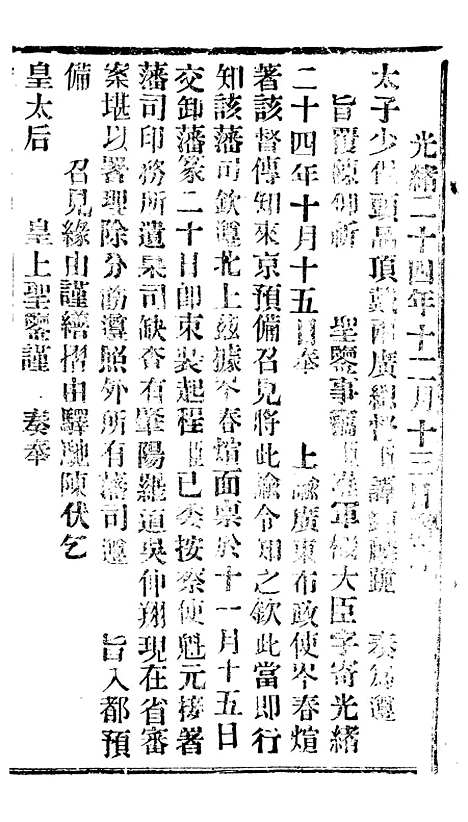 光緒二十四年十二月十三日
太子少保頭品頂戴兩廣總督臣譚鍾麟跪　奏爲遵
旨覆陳仰祈　聖鑒事竊臣准軍機大臣字寄光緒
二十四年十月十五日奉　上諭廣東布政使岑春煊
著該督傳知來京預備召見將此諭令知之欽此當即行
知該藩司欽遵北上茲據岑春煊面稟於十一月十五日
交卸藩篆二十日卽束裝起程臣已委按察使魁元接署
藩司印務所遺臬司缺查有肇陽羅道吳仲翔現在省審
案堪以署理除分飭遵照外所有藩司遵　旨入都預
備　召見緣由謹繕摺由驛馳陳伏乞
皇太后　皇上聖鑒謹　奏奉